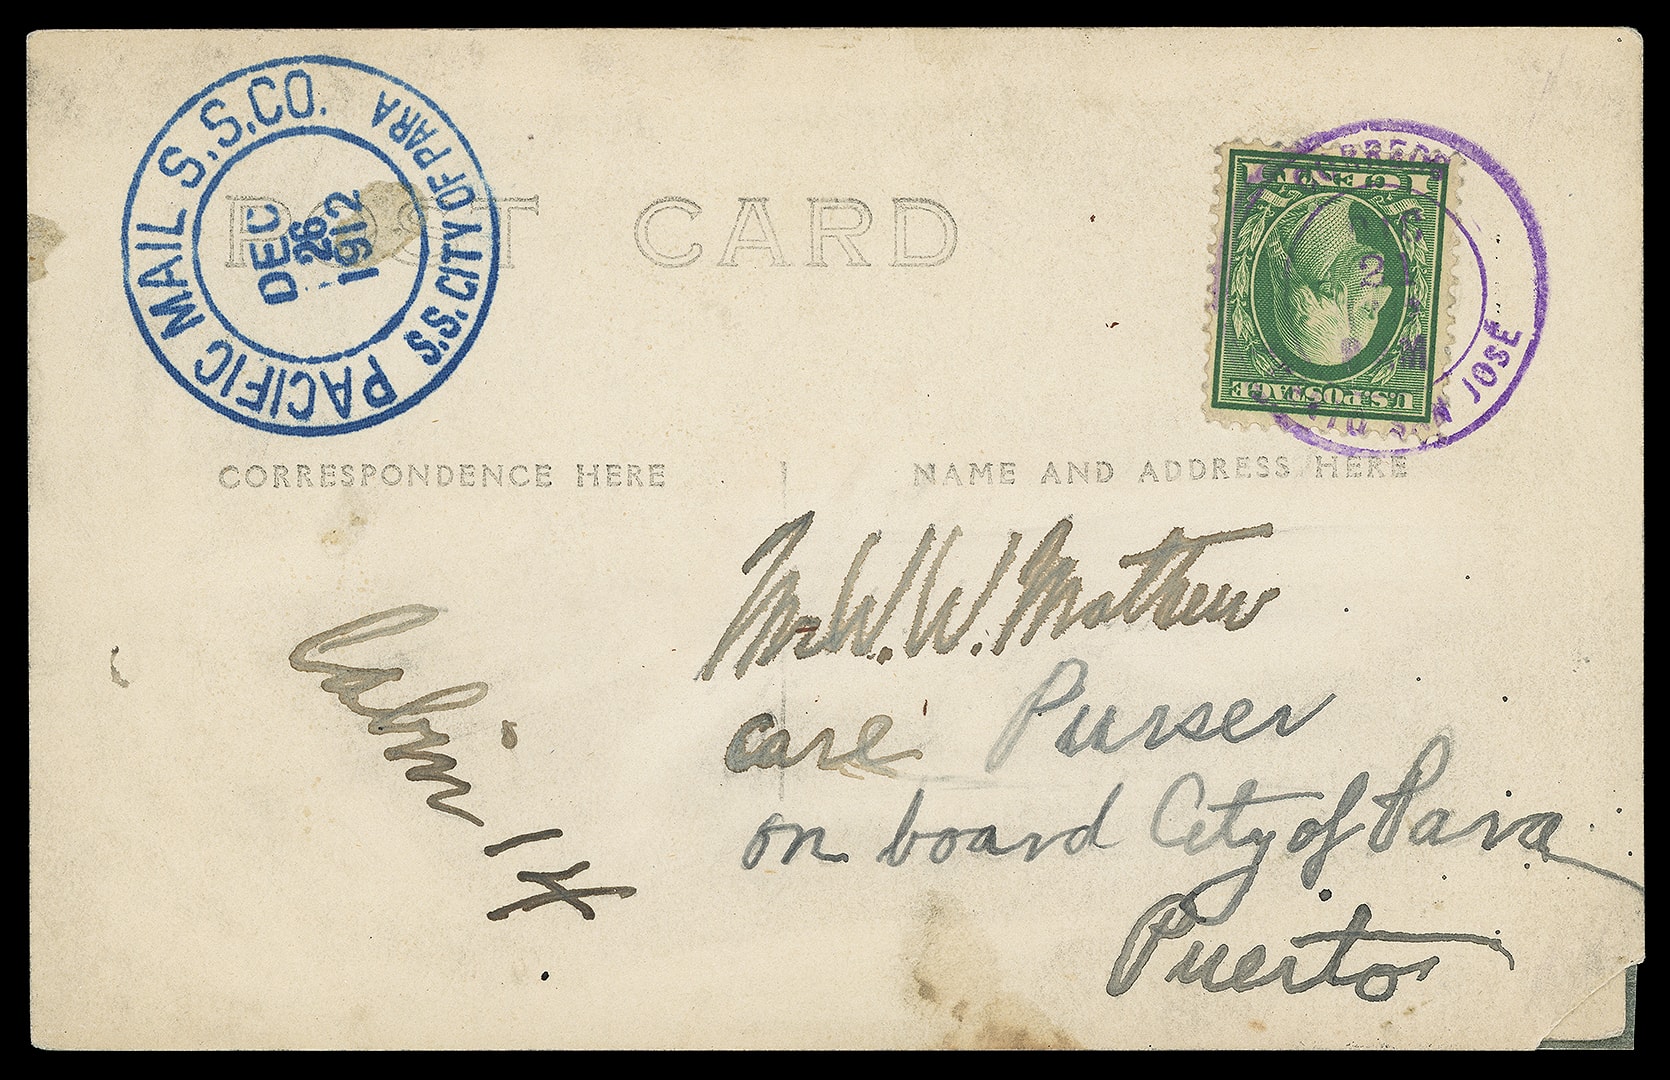 PACIFIC MAIL S.S.CO.
S.S. CITY OF PARA
DEC
26
1912
POST CARD
1 CENT 1
U.S. POSTAGE
CORREOS
2
M
SAN JOSE
CORRESPONDENCE HERE
NAME AND ADDRESS HERE
Mr W. W. Mathew
care Purser
on board City of Para
Puerto
Cabin 14